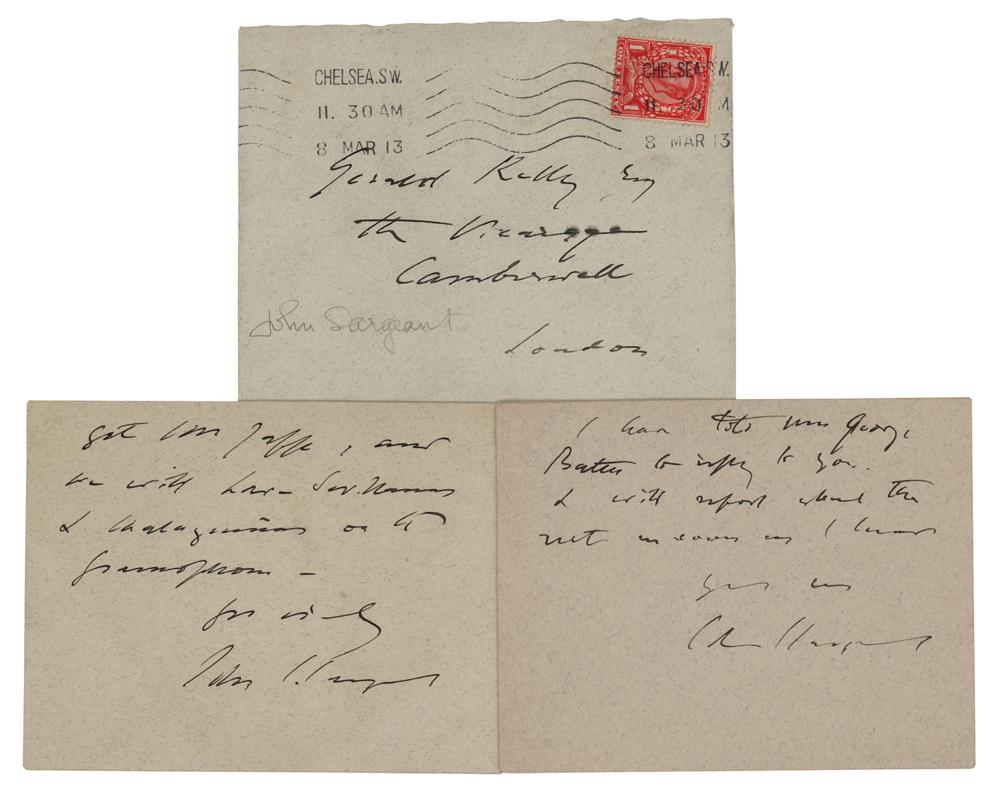 CHELSEA.S.W.
11. 30 AM
8 MAR 13
CHELSEA.S.W.
11. 30 M
8 MAR 13
Gerald Kelly, Esq
The Vicarage
Camberwell
London
John Sargeant
get Mr Jaffe, and
we will have Sevillanas
& Malagueñas on the
gramophone —
yrs
John S. Sargent
I have told Mrs George
Batten to reply to you.
I will report about the
rest as soon as I know
yrs
John S. Sargent